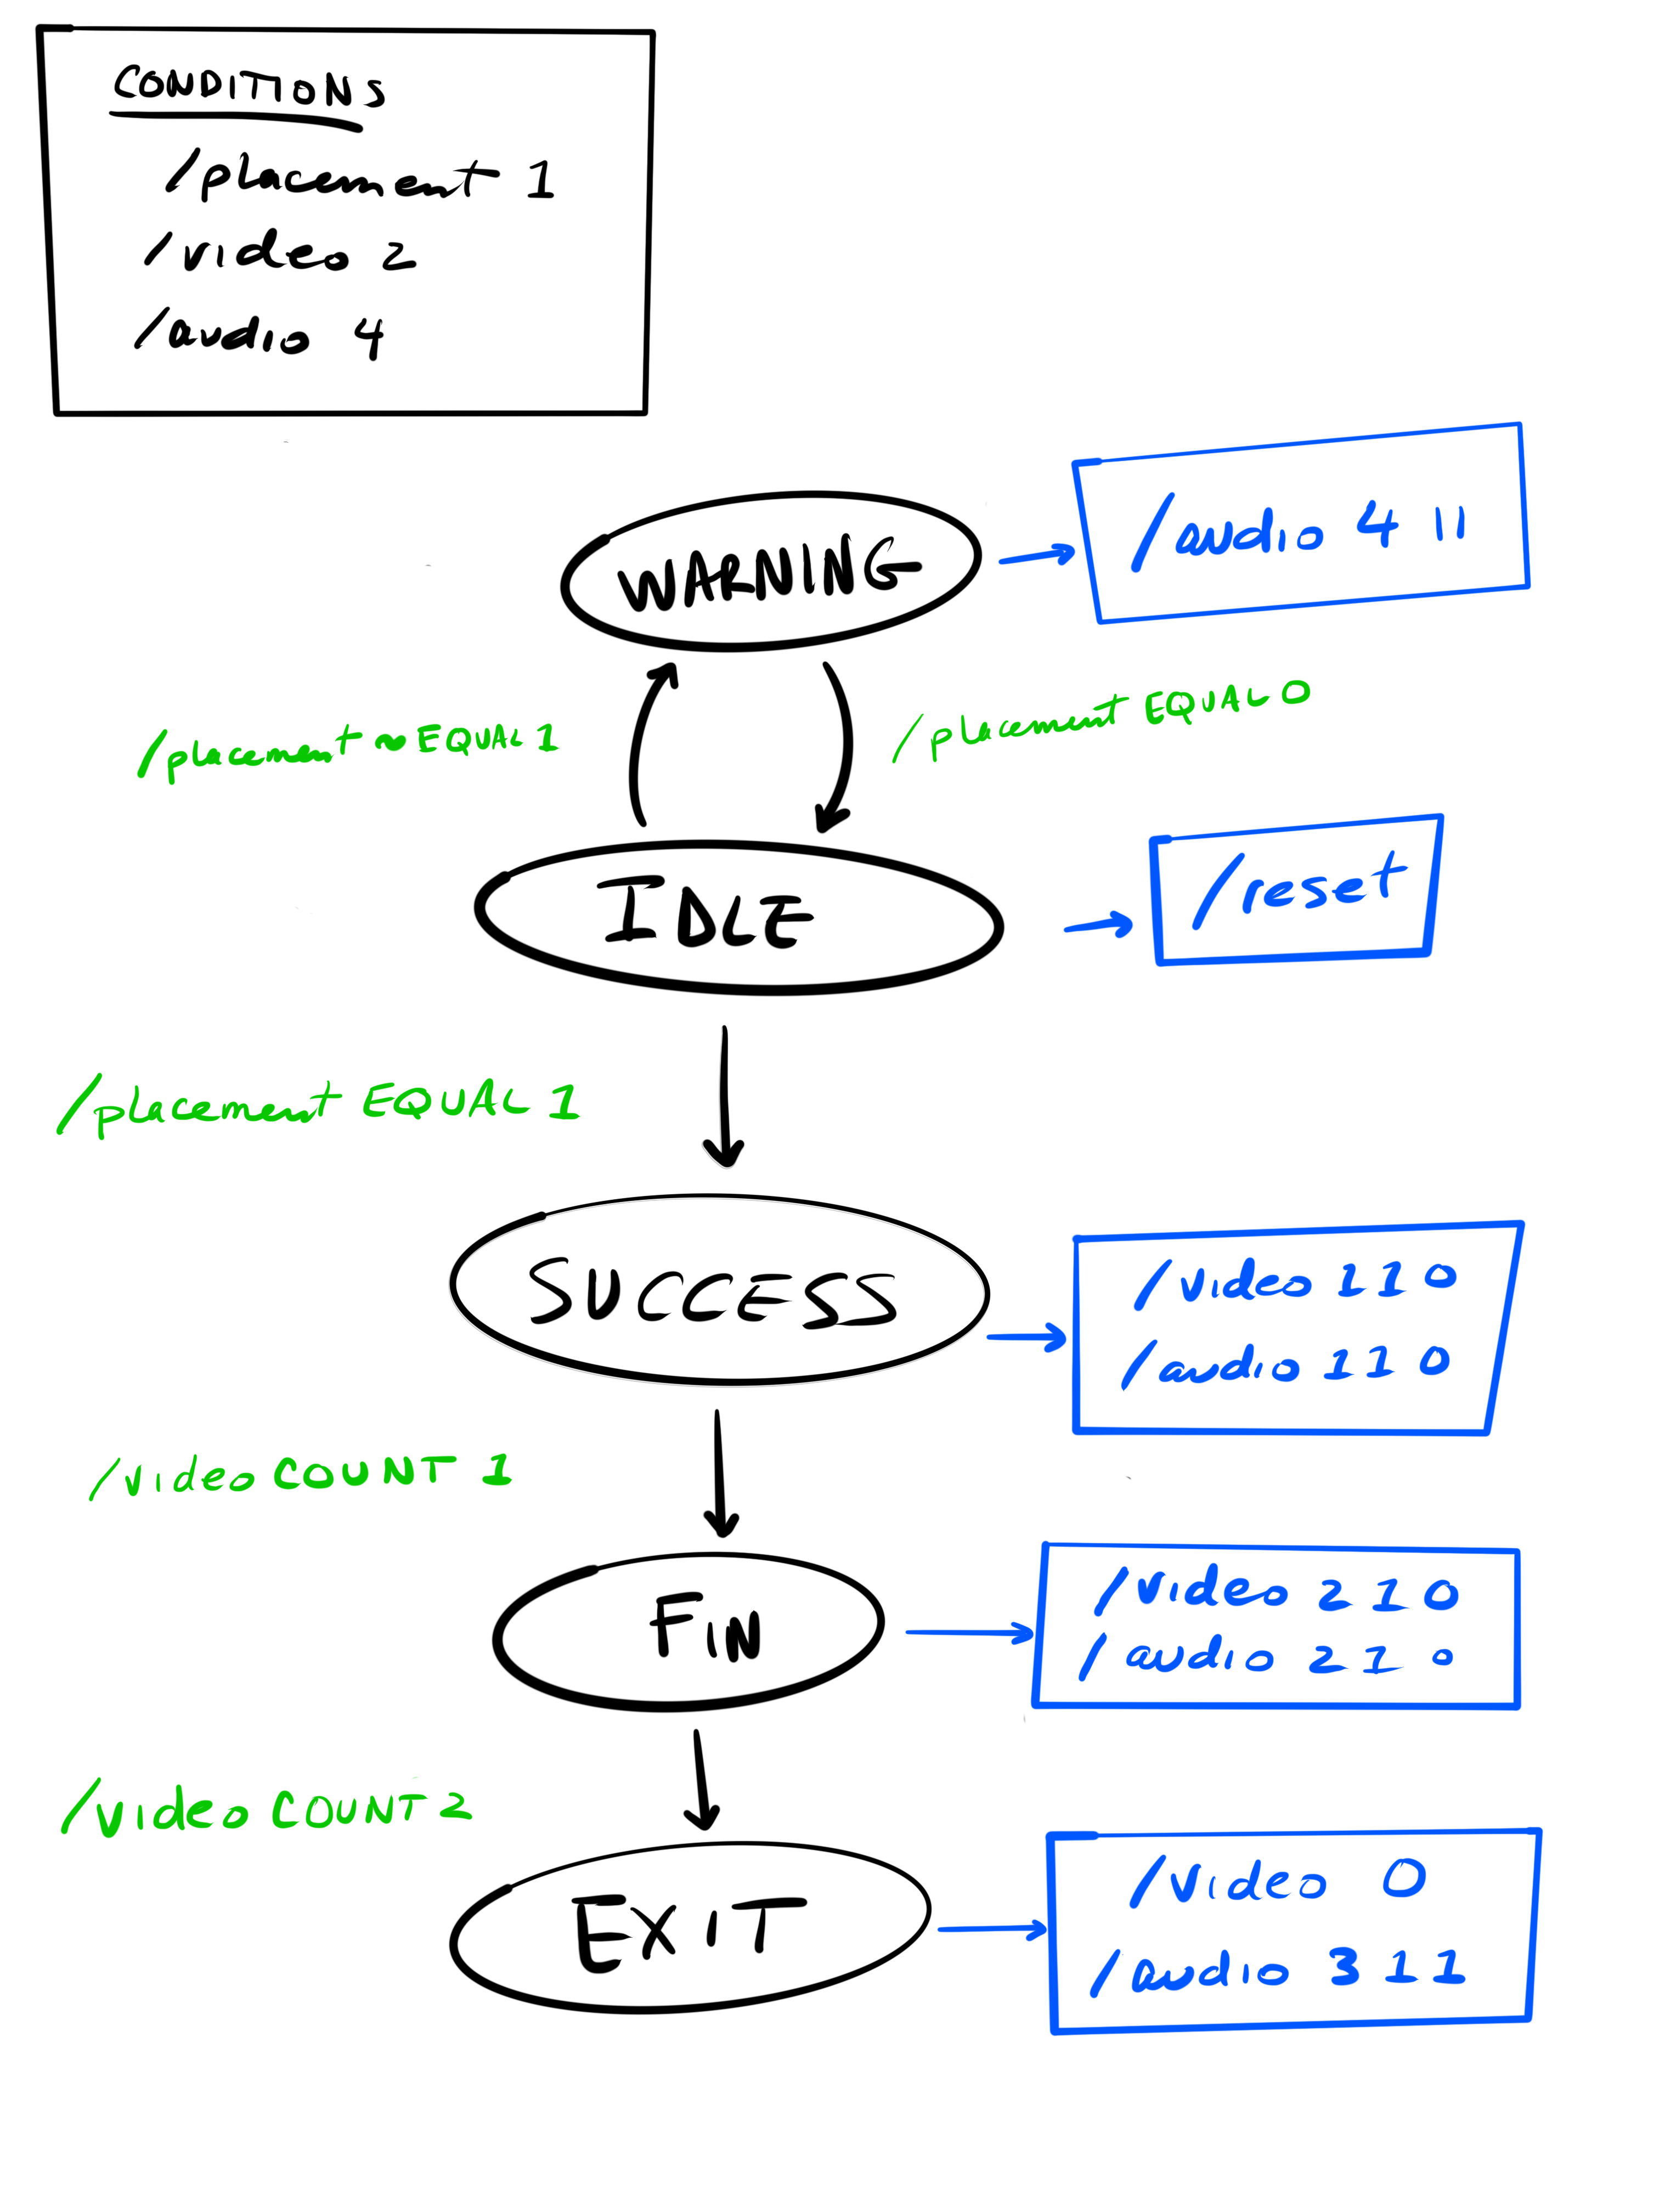 CONDITIONS
/placement 1
/video 2
/audio 4
WARNING
/audio 4 11
/placement ~EQUAL 1
/placement EQUAL 0
IDLE
/reset
/placement EQUAL 1
SUCCESS
/video 1 1 0
/audio 1 1 0
/video COUNT 1
FIN
/video 2 1 0
/audio 2 1 0
/video COUNT 2
EXIT
/video 0
/audio 3 1 1